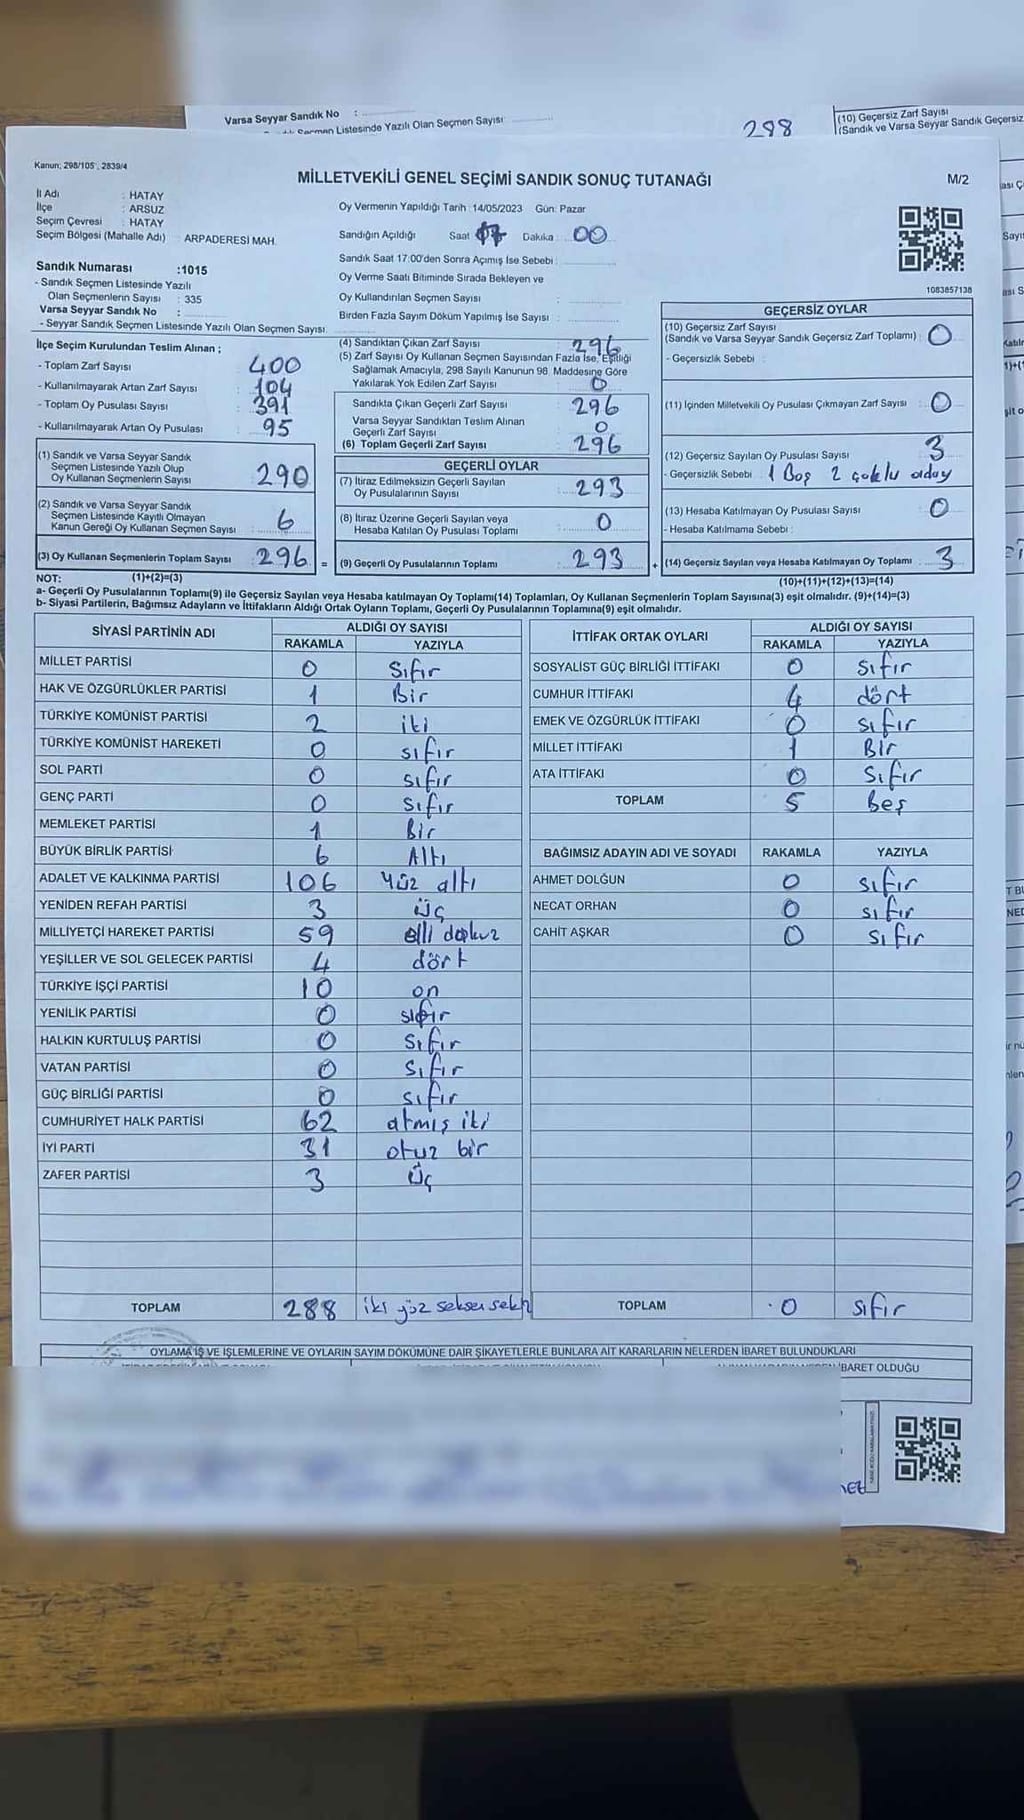 Varsa Seyyar Sandık No :
Seçmen Listesinde Yazılı Olan Seçmen Sayısı
298
(10) Geçersiz Zarf Sayısı
(Sandık ve Varsa Seyyar Sandık Geçersiz
Kanun; 298/105, 2839/4
MİLLETVEKİLİ GENEL SEÇİMİ SANDIK SONUÇ TUTANAĞI
M/2
İl Adı : HATAY
İlçe : ARSUZ
Seçim Çevresi : HATAY
Seçim Bölgesi (Mahalle Adı) : ARPADERESİ MAH.
Oy Vermenin Yapıldığı Tarih :14/05/2023 Gün: Pazar
Sandığın Açıldığı Saat Dakika : 00
Sandık Saat 17:00'den Sonra Açımış İse Sebebi :
Oy Verme Saati Bitiminde Sırada Bekleyen ve
Oy Kullandırılan Seçmen Sayısı :
Birden Fazla Sayım Döküm Yapılmış İse Sayısı :
1083857138
Sandık Numarası :1015
- Sandık Seçmen Listesinde Yazılı
Olan Seçmenlerin Sayısı : 335
Varsa Seyyar Sandık No :
- Seyyar Sandık Seçmen Listesinde Yazılı Olan Seçmen Sayısı:
İlçe Seçim Kurulundan Teslim Alınan ;
- Toplam Zarf Sayısı : 400
- Kullanılmayarak Artan Zarf Sayısı : 104
- Toplam Oy Pusulası Sayısı : 391
- Kullanılmayarak Artan Oy Pusulası : 95
(1) Sandık ve Varsa Seyyar Sandık
Seçmen Listesinde Yazılı Olup
Oy Kullanan Seçmenlerin Sayısı : 290
(2) Sandık ve Varsa Seyyar Sandık
Seçmen Listesinde Kayıtlı Olmayan
Kanun Gereği Oy Kullanan Seçmen Sayısı : 6
(3) Oy Kullanan Seçmenlerin Toplam Sayısı : 296 =
(4) Sandıktan Çıkan Zarf Sayısı : 296
(5) Zarf Sayısı Oy Kullanan Seçmen Sayısından Fazla İse, Eşitliği
Sağlamak Amacıyla, 298 Sayılı Kanunun 98. Maddesine Göre
Yakılarak Yok Edilen Zarf Sayısı : 0
Sandıkta Çıkan Geçerli Zarf Sayısı : 296
Varsa Seyyar Sandıktan Teslim Alınan
Geçerli Zarf Sayısı : 0
(6) Toplam Geçerli Zarf Sayısı : 296
GEÇERLİ OYLAR
(7) İtiraz Edilmeksizin Geçerli Sayılan
Oy Pusulalarının Sayısı : 293
(8) İtiraz Üzerine Geçerli Sayılan veya
Hesaba Katılan Oy Pusulası Toplamı : 0
(9) Geçerli Oy Pusulalarının Toplamı : 293 +
GEÇERSİZ OYLAR
(10) Geçersiz Zarf Sayısı
(Sandık ve Varsa Seyyar Sandık Geçersiz Zarf Toplamı) : 0
- Geçersizlik Sebebi :
(11) İçinden Milletvekili Oy Pusulası Çıkmayan Zarf Sayısı : 0
(12) Geçersiz Sayılan Oy Pusulası Sayısı : 3
- Geçersizlik Sebebi : 1 Boş 2 çoklu aday
(13) Hesaba Katılmayan Oy Pusulası Sayısı : 0
- Hesaba Katılmama Sebebi :
(14) Geçersiz Sayılan veya Hesaba Katılmayan Oy Toplamı : 3
NOT: (1)+(2)=(3)
(10)+(11)+(12)+(13)=(14)
a- Geçerli Oy Pusulalarının Toplamı(9) ile Geçersiz Sayılan veya Hesaba katılmayan Oy Toplamı(14) Toplamları, Oy Kullanan Seçmenlerin Toplam Sayısına(3) eşit olmalıdır. (9)+(14)=(3)
b- Siyasi Partilerin, Bağımsız Adayların ve İttifakların Aldığı Ortak Oyların Toplamı, Geçerli Oy Pusulalarının Toplamına(9) eşit olmalıdır.
SİYASİ PARTİNİN ADI ALDIĞI OY SAYISI
RAKAMLA YAZIYLA
MİLLET PARTİSİ 0 Sıfır
HAK VE ÖZGÜRLÜKLER PARTİSİ 1 Bir
TÜRKİYE KOMÜNİST PARTİSİ 2 iki
TÜRKİYE KOMÜNİST HAREKETİ 0 sıfır
SOL PARTİ 0 sıfır
GENÇ PARTİ 0 sıfır
MEMLEKET PARTİSİ 1 Bir
BÜYÜK BİRLİK PARTİSİ 6 Altı
ADALET VE KALKINMA PARTİSİ 106 Yüz altı
YENİDEN REFAH PARTİSİ 3 üç
MİLLİYETÇİ HAREKET PARTİSİ 59 elli dokuz
YEŞİLLER VE SOL GELECEK PARTİSİ 4 dört
TÜRKİYE İŞÇİ PARTİSİ 10 on
YENİLİK PARTİSİ 0 sıfır
HALKIN KURTULUŞ PARTİSİ 0 sıfır
VATAN PARTİSİ 0 sıfır
GÜÇ BİRLİĞİ PARTİSİ 0 sıfır
CUMHURİYET HALK PARTİSİ 62 atmış iki
İYİ PARTİ 31 otuz bir
ZAFER PARTİSİ 3 üç
TOPLAM 288 iki yüz seksen sekiz
İTTİFAK ORTAK OYLARI ALDIĞI OY SAYISI
RAKAMLA YAZIYLA
SOSYALİST GÜÇ BİRLİĞİ İTTİFAKI 0 sıfır
CUMHUR İTTİFAKI 4 dört
EMEK VE ÖZGÜRLÜK İTTİFAKI 0 sıfır
MİLLET İTTİFAKI 1 Bir
ATA İTTİFAKI 0 sıfır
TOPLAM 5 Beş
BAĞIMSIZ ADAYIN ADI VE SOYADI RAKAMLA YAZIYLA
AHMET DOLĞUN 0 sıfır
NECAT ORHAN 0 sıfır
CAHİT AŞKAR 0 sıfır
TOPLAM 0 sıfır
OYLAMA İŞ VE İŞLEMLERİNE VE OYLARIN SAYIM DÖKÜMÜNE DAİR ŞİKAYETLERLE BUNLARA AİT KARARLARIN NELERDEN İBARET BULUNDUKLARI
İBARET OLDUĞU